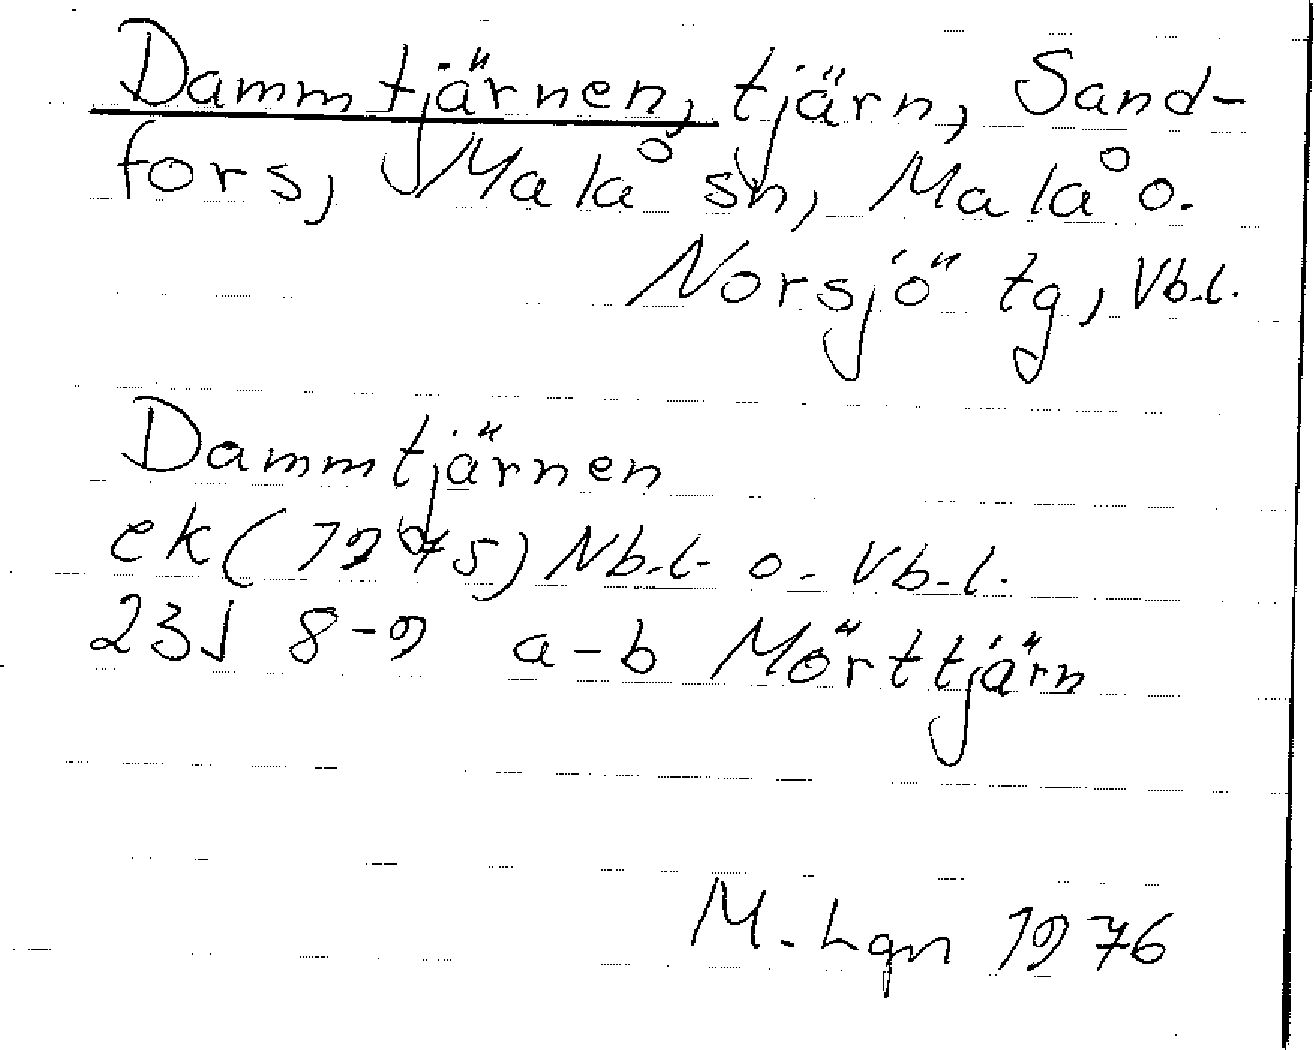 Dammtjärnen, tjärn, Sand-
fors, Malå sn, Malå o.
Norsjö tg, Vb.l.
Dammtjärnen
ek (1975) Nb.l. o. Vb.l.
23J 8-9 a-b Mörttjärn
M. Lqn 1976